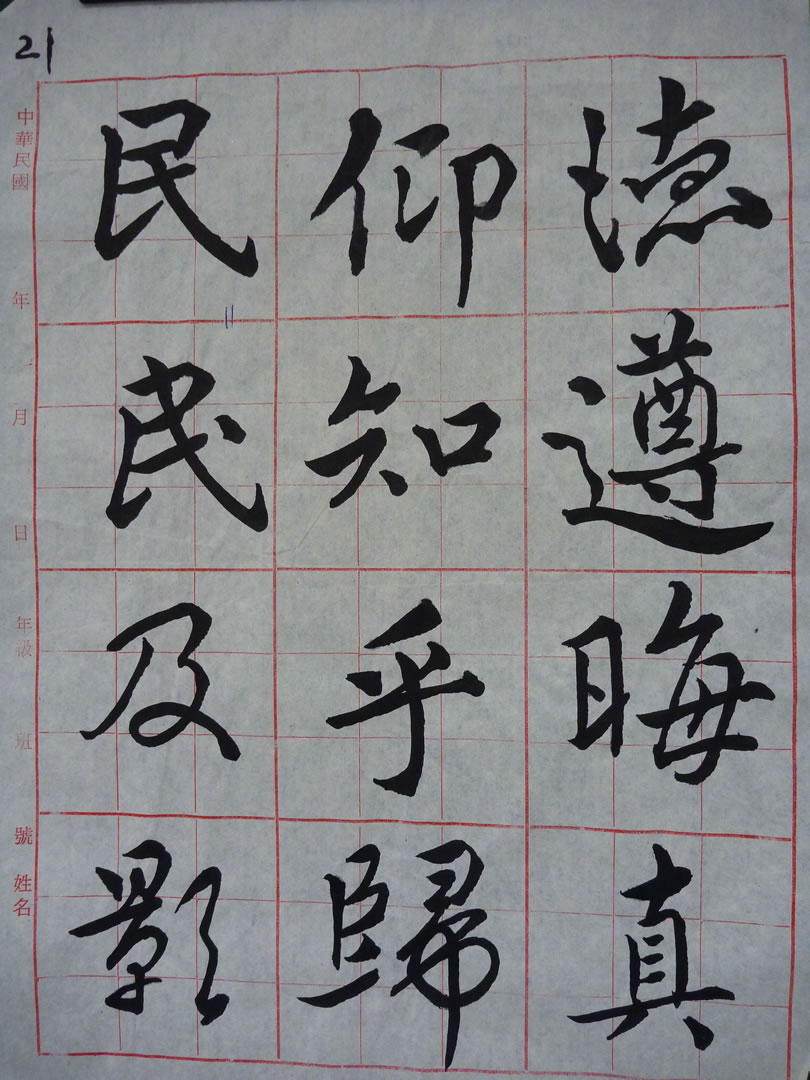 21
德遵晦真
仰知乎歸
民民及影
中華民國 年 月 日 年級 班 號 姓名